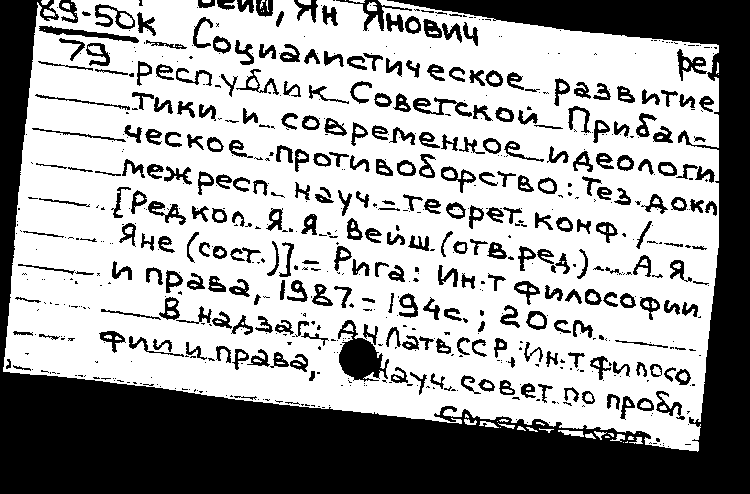 89-50к Вейш, Ян Янович
79 ред
Социалистическое развитие
республик Советской Прибал-
тики и современное идеологи
ческое противоборство: Тез. докл
межресп. науч.-теорет. конф. /
[Редкол. Я. Я. Вейш (отв. ред.) ... А. Я.
Яне (сост.)]. - Рига: Ин-т философии
и права, 1987. - 194с.; 20см.
В надзаг.: АН ЛатвССР, Ин-т филосо
фии и права, Науч. совет по пробл.
см. след. карт.